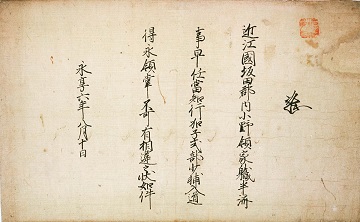 近江國坂田郡内小野領家職半済
事早任當知行小子式部少輔入道
得永領掌不可有相違之状如件
永享六年八月十日